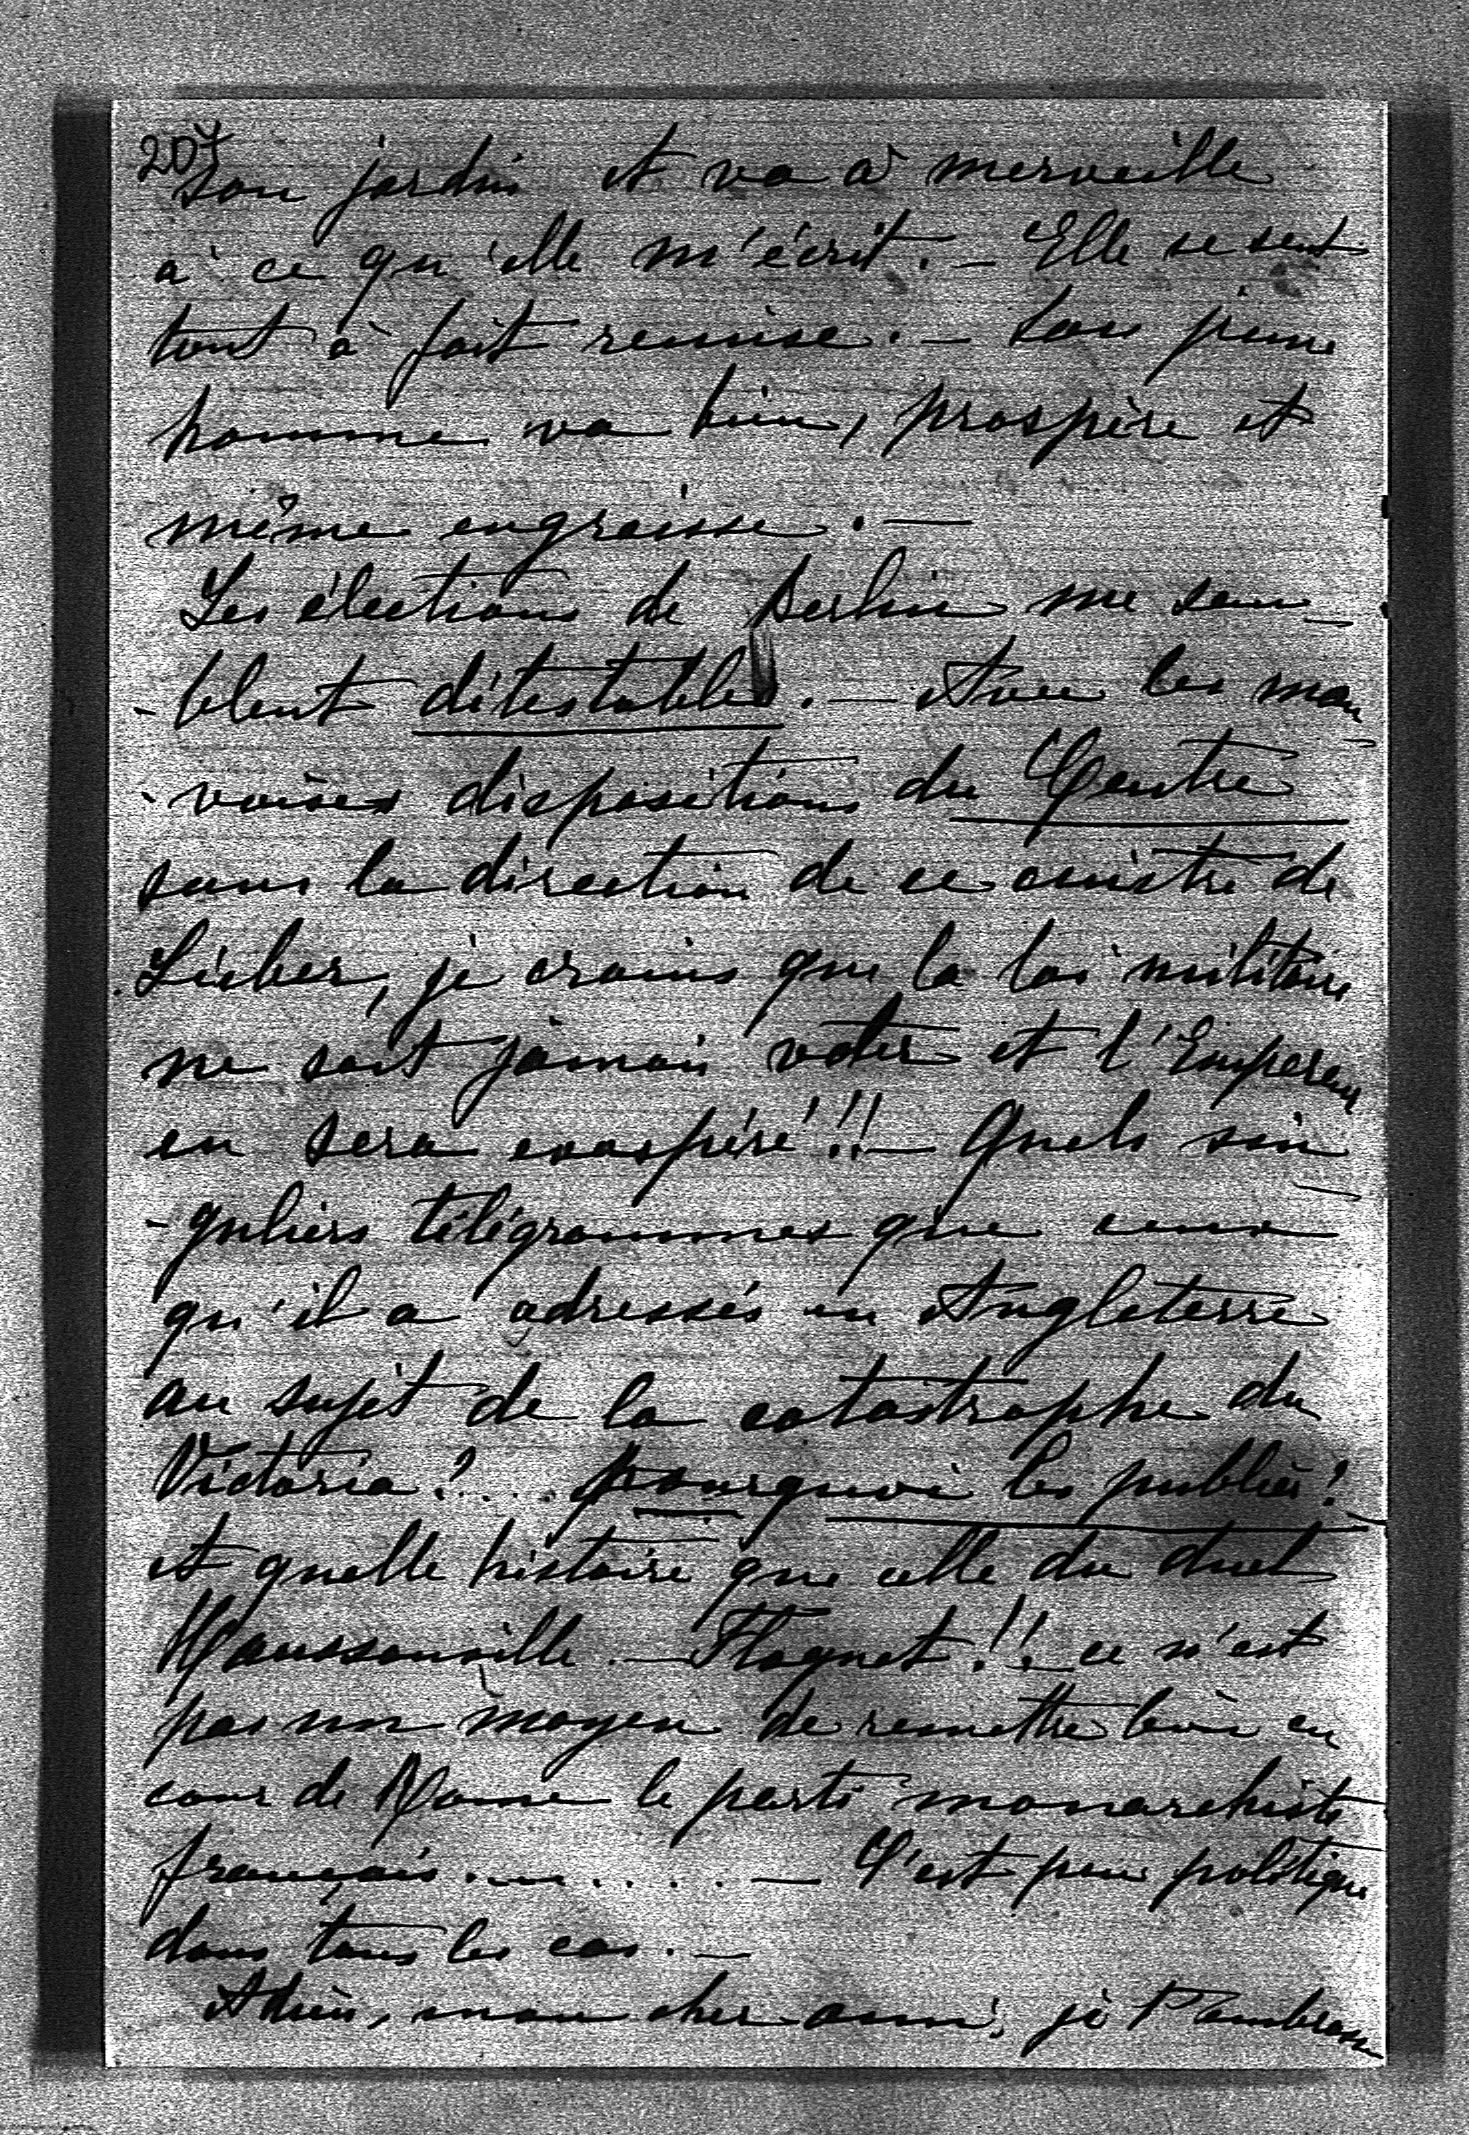 207
son jardin et va à merveille
à ce qu'elle m'écrit. — Elle se sent
tout à fait remise. — Son jeune
homme va bien, prospère et
même engraisse. —
Les élections de Berlin me sem-
-blent détestables. — Avec les mau-
-vaises dispositions du Centre
sous la direction de ce cuistre de
Lieber, je crains que la loi militaire
ne soit jamais votée et l'Empereur
en sera exaspéré!!! — Quels sin-
-guliers télégrammes que ceux
qu'il a adressés en Angleterre
au sujet de la catastrophe du
Victoria?.... pourquoi les publier?
et quelle histoire que celle du duel
Haussonville. — Floquet!! ce n'est
pas un moyen de remettre bien en
cour de Rome le parti monarchiste
français........ — C'est peu politique
dans tous les cas. —
Adieu, mon cher ami, je t'embrasse